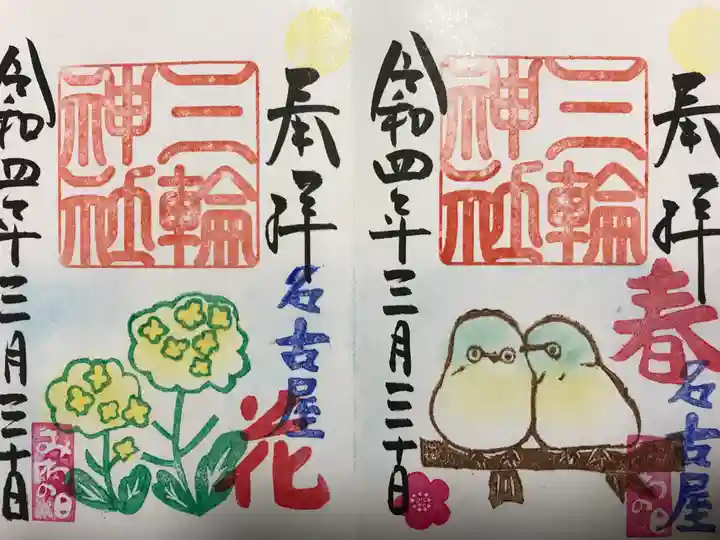 奉拝
三輪神社
名古屋
花
令和四年三月三十日
奉拝
三輪神社
春
名古屋
令和四年三月三十日